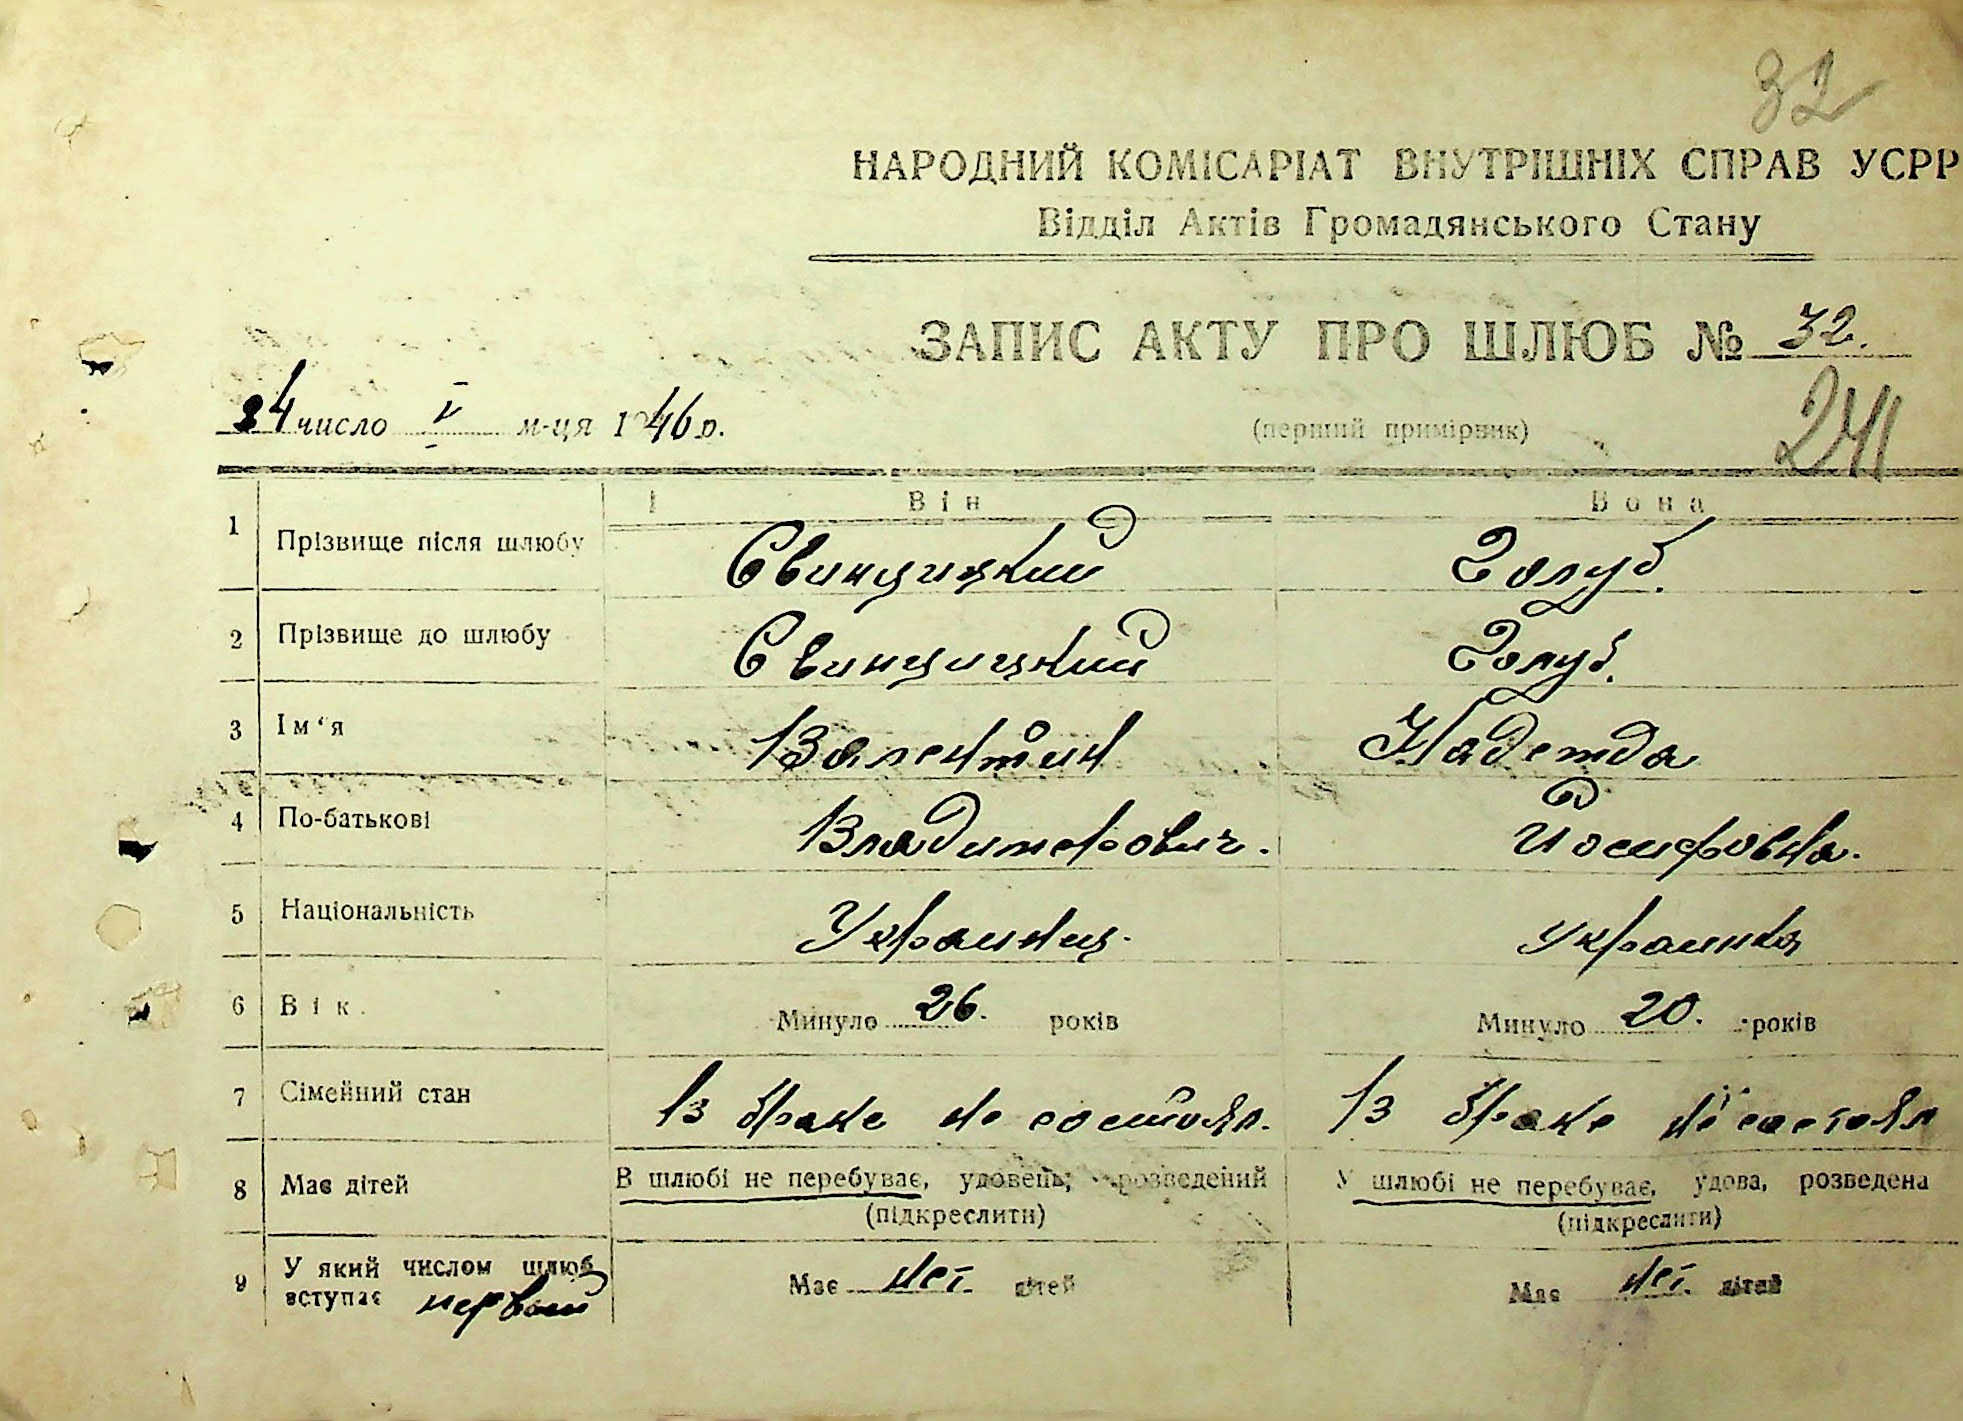 32
НАРОДНИЙ КОМІСАРІАТ ВНУТРІШНІХ СПРАВ УСРР
Відділ Актів Громадянського Стану
ЗАПИС АКТУ ПРО ШЛЮБ № 32.
24 число V м-ця 1946 р.
(перший примірник)
241
Він Вона
1 Прізвище після шлюбу Свинцицкий Голуб.
2 Прізвище до шлюбу Свинцицкий Голуб.
3 Ім‘я Валентин Надежда
4 По-батькові Владимирович. Иосифовна.
5 Національність Украинец. Украинка
6 Вік. Минуло 26. років Минуло 20. років
7 Сімейний стан В браке не состоял. В браке не состоял
8 Має дітей В шлюбі не перебуває, удовець, розведений У шлюбі не перебуває, удова, розведена
(підкреслити) (підкреслити)
9 У який числом шлюб
вступає первый Має нет. дітей Має нет. дітей